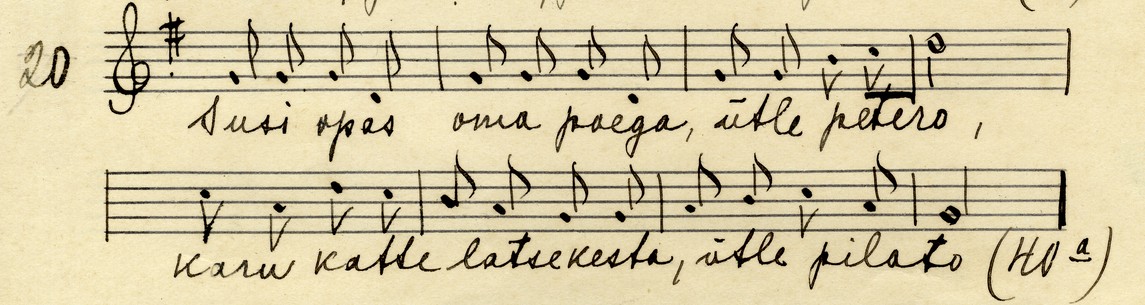 20
Susi opas oma poega, ütle petero,
karu katte latsekesta, ütle pilato (40 a)